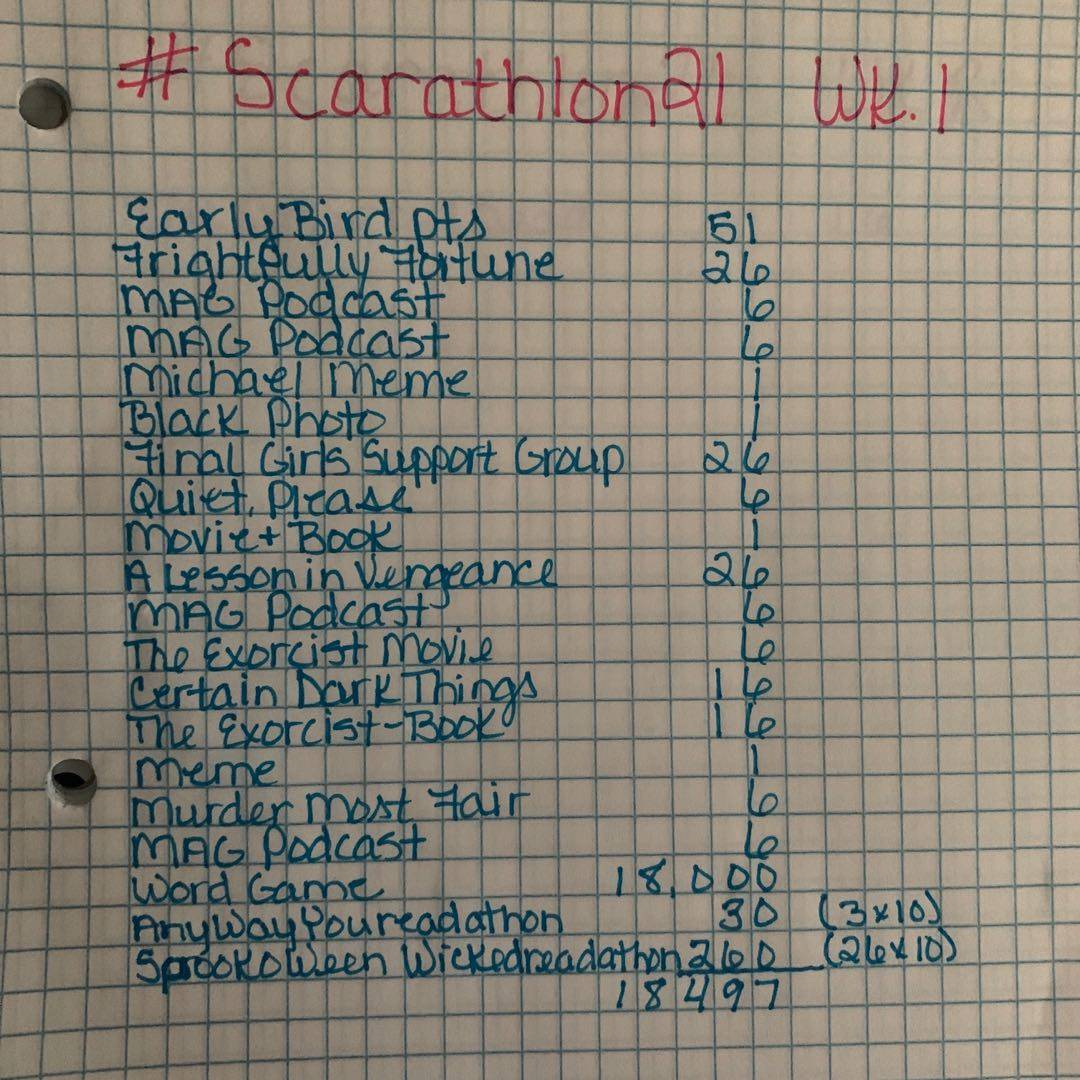 #Scarathlon21 Wk.1
Early Bird pts 51
Frightfully Fortune 26
MAG Podcast 6
MAG Podcast 6
Michael Meme 1
Black Photo 1
Final Girls Support Group 26
Quiet, Please 6
Movie + Book 1
A Lesson in Vengeance 26
MAG Podcast 6
The Exorcist Movie 6
Certain Dark Things 16
The Exorcist-Book 16
Meme 1
Murder Most Fair 6
MAG Podcast 6
Word Game 18,000
AnyWayYoureadathon 30 (3x10)
SprookoWeen Wickedreadathon 260 (26x10)
18497